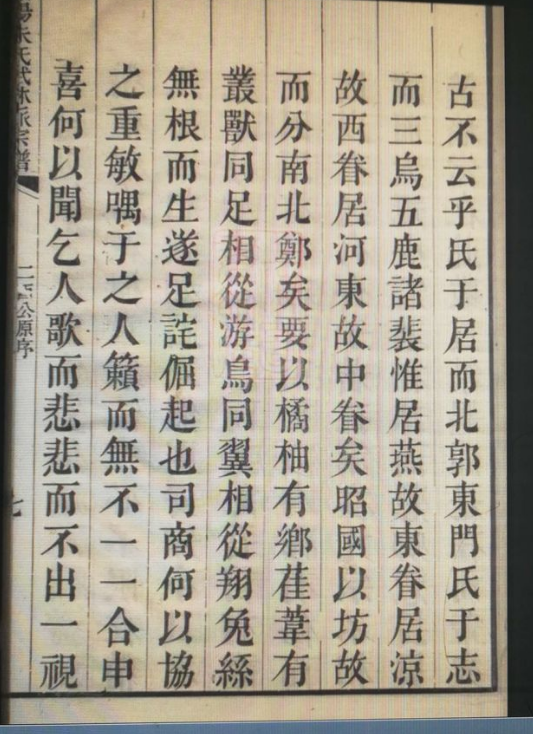 古不云乎氏于居而北郭東門氏于志
而三烏五鹿諸裴惟居燕故東眷居涼
故西眷居河東故中眷矣昭國以坊故
而分南北鄭矣要以橘柚有鄉萑葦有
叢獸同足相從游鳥同翼相從翔兔絲
無根而生遂足詫倔起也司商何以協
之重敏喁于之人籟而無不一一合申
喜何以聞乞人歌而悲悲而不出一視
朱氏武林派宗譜
公原序
七